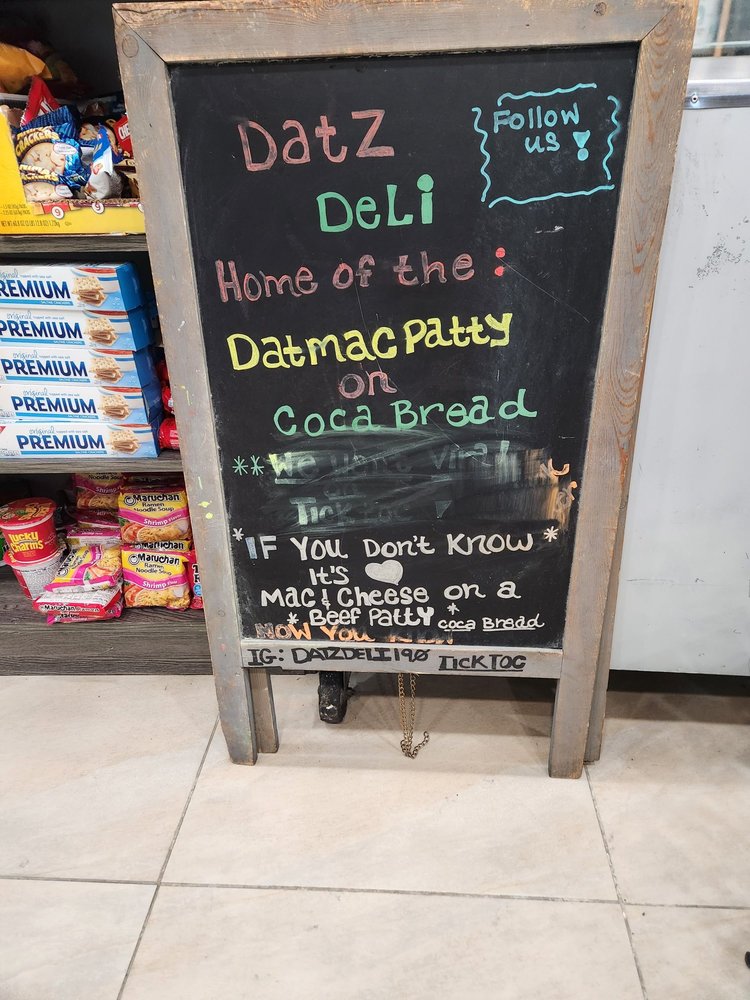 Datz
Deli
Follow
us!
Home of the:
Datmac Patty
on
Coca Bread
**We
Tick
*IF You Don't Know*
It's
Mac & Cheese on a
*Beef Patty*
coca Bread
Now You
IG: DATZDELI190 TICKTOC
CRACKERS
original
PREMIUM
SALTINE CRACKERS
original
PREMIUM
original
PREMIUM
original
PREMIUM
PREMIUM
Lucky
Charms
Maruchan
Ramen
Noodle Soup
Shrimp
Maruchan
Ramen
Noodle Soup
Shrimp